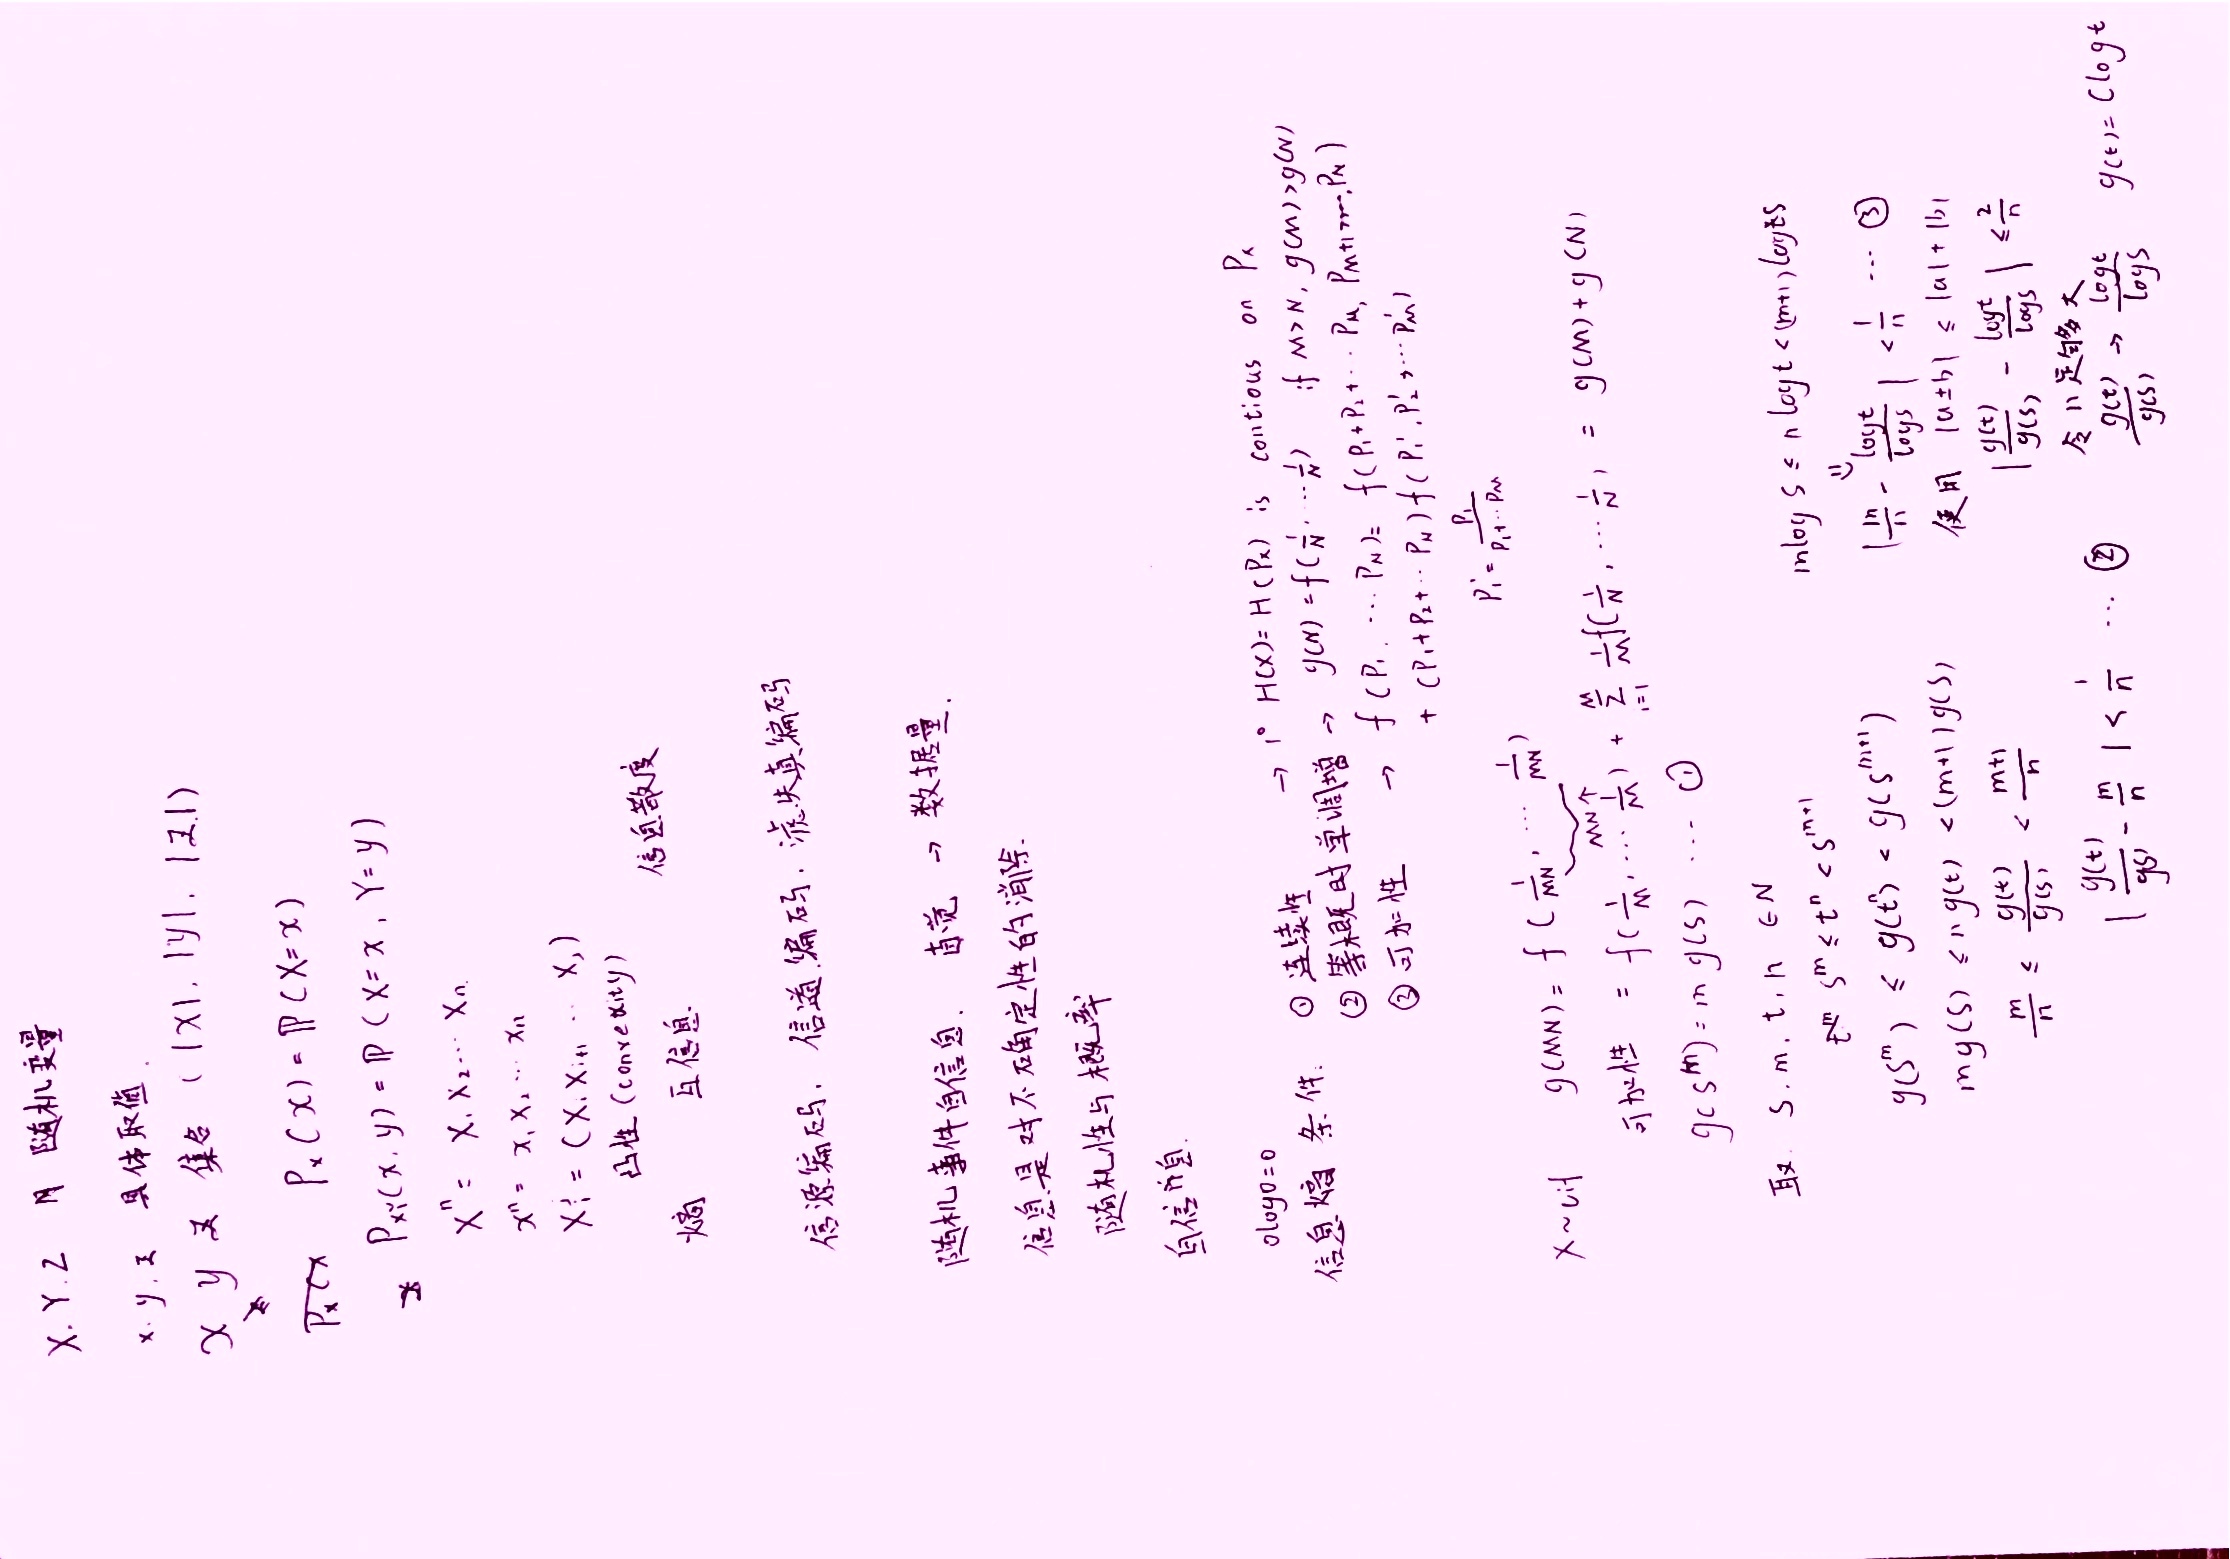 X. Y. Z 随机变量
x. y. z 具体取值.
𝒳 𝒴 𝒵 集合 (|𝒳|. |𝒴|. |𝒵|)
P_X(x P_X(x) = ℙ(X=x)
P_XY(x, y) = ℙ(X=x, Y=y)
X^n = X_1 X_2 ... X_n.
x^n = x_1 x_2 ... x_n
X_i^j = (X_i X_{i+1} .. X_j)
凸性 (convexity)
熵 互信息. 信息散度
信源编码. 信道编码. 失真编码
随机事件自信息. 直觉 → 数据量.
信息是对不确定性的消除.
随机性与概率
自信息.
0log0=0
信息熵 条件. ① 连续性 → 1° H(X) = H(P_X) is contious on P_X
② 等概时单调增 → g(N) = f(1/N, ... 1/N) if M>N, g(M)>g(N)
③ 可加性 → f(P_1, ... P_N) = f(P_1+P_2+... P_M, P_{M+1}, ..., P_N)
+ (P_1+P_2+.. P_N) f(P_1', P_2', ... P_M')
P_1' = P_1/(P_1+.. P_M)
X~uif g(MN) = f(1/MN, ... 1/MN)
MN个
可加性 = f(1/M, ... 1/M) + Σ_{i=1}^{M} 1/M f(1/N, ... 1/N) = g(M) + g(N)
g(s^m) = m g(s) ... ①
取 s. m. t. n ∈ N
s^m ≤ t^n < s^{m+1}
g(s^m) ≤ g(t^n) < g(s^{m+1})
mg(s) ≤ n g(t) < (m+1) g(s)
m/n ≤ g(t)/g(s) < (m+1)/n
| g(t)/g(s) - m/n | < 1/n ... ②
mlog s ≤ n log t < (m+1) log s
⇓
| m/n - logt/logs | < 1/n ... ③
使用 |a±b| ≤ |a| + |b|
| g(t)/g(s) - logt/logs | ≤ 2/n
令 n 足够大
g(t)/g(s) → logt/logs g(t) = Clogt